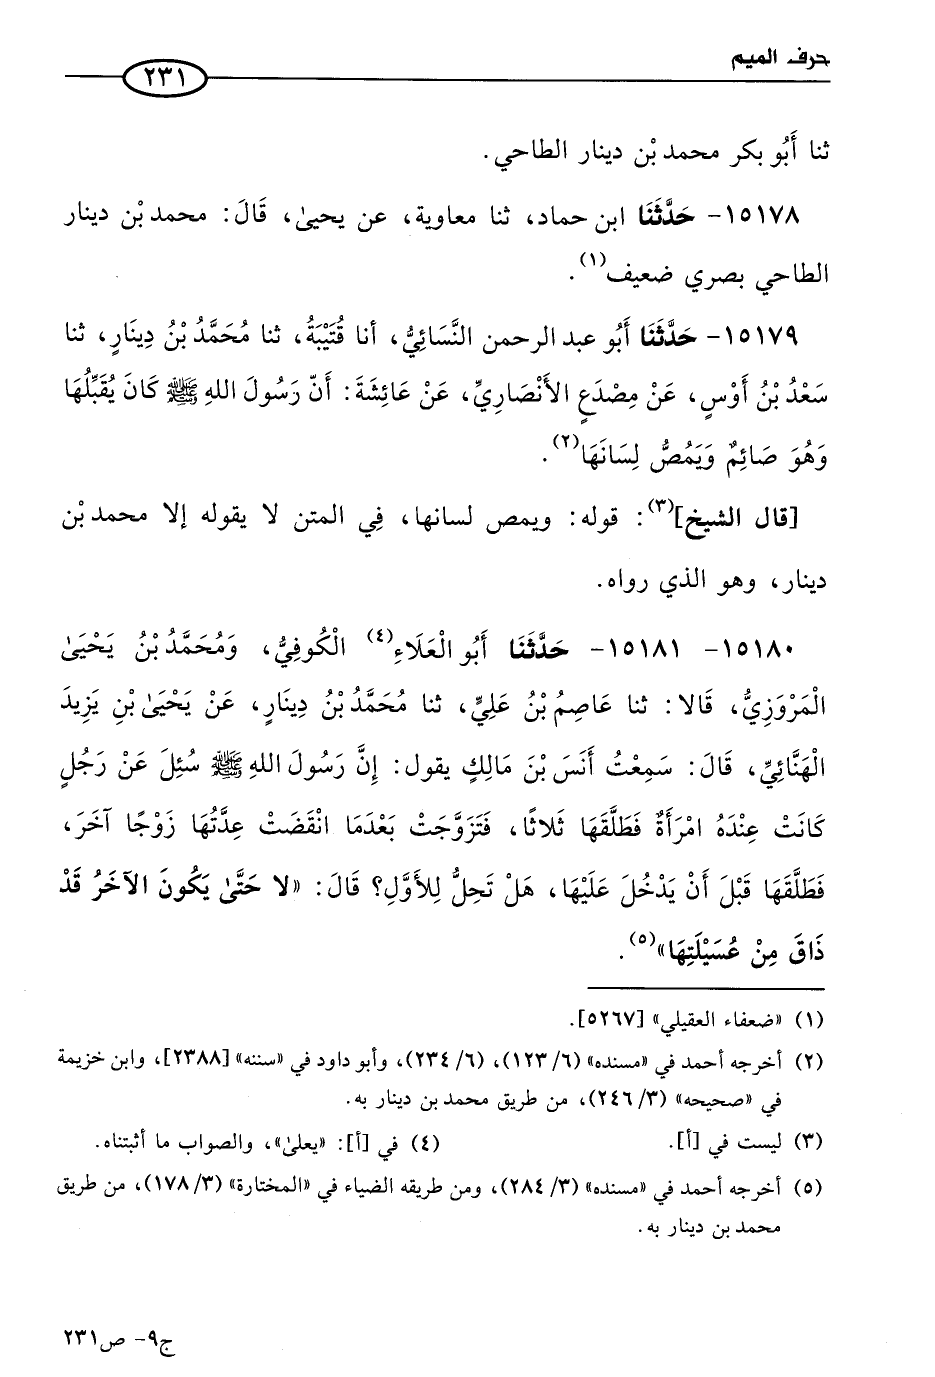 حرف الميم
٢٣١
ثنا أَبُو بكر محمد بْن دينار الطاحي.
١٥١٧٨- حَدَّثَنَا ابن حماد، ثنا معاوية، عن يحيىٰ، قَالَ: محمد بْن دينار
الطاحي بصري ضعيف(١).
١٥١٧٩- حَدَّثَنَا أَبُو عبد الرحمن النَّسَائِيُّ، أنا قُتَيْبَةُ، ثنا مُحَمَّدُ بْنُ دِينَارٍ، ثنا
سَعْدُ بْنُ أَوْسٍ، عَنْ مِصْدَعٍ الأَنْصَارِيِّ، عَنْ عَائِشَةَ: أَنّ رَسُولَ اللهِ ﷺ كَانَ يُقَبِّلُهَا
وَهُوَ صَائِمٌ وَيَمُصُّ لِسَانَهَا(٢).
[قال الشيخ](٣): قوله: ويمص لسانها، فِي المتن لا يقوله إلا محمد بْن
دينار، وهو الذي رواه.
١٥١٨٠- ١٥١٨١- حَدَّثَنَا أَبُو الْعَلَاءِ(٤) الْكُوفِيُّ، وَمُحَمَّدُ بْنُ يَحْيَىٰ
الْمَرْوَزِيُّ، قَالا: ثنا عَاصِمُ بْنُ عَلِيٍّ، ثنا مُحَمَّدُ بْنُ دِينَارٍ، عَنْ يَحْيَىٰ بْنِ يَزِيدَ
الْهَنَائِيِّ، قَالَ: سَمِعْتُ أَنَسَ بْنَ مَالِكٍ يقول: إِنَّ رَسُولَ اللهِ ﷺ سُئِلَ عَنْ رَجُلٍ
كَانَتْ عِنْدَهُ امْرَأَةٌ فَطَلَّقَهَا ثَلاثًا، فَتَزَوَّجَتْ بَعْدَمَا انْقَضَتْ عِدَّتُهَا زَوْجًا آخَرَ،
فَطَلَّقَهَا قَبْلَ أَنْ يَدْخُلَ عَلَيْهَا، هَلْ تَحِلُّ لِلأَوَّلِ؟ قَالَ: «لا حَتَّىٰ يَكُونَ الآخَرُ قَدْ
ذَاقَ مِنْ عُسَيْلَتِهَا»(٥).
(١) «ضعفاء العقيلي» [٥٢٦٧].
(٢) أخرجه أحمد في «مسنده» (٦/ ١٢٣)، (٦/ ٢٣٤)، وأبو داود في «سننه» [٢٣٨٨]، وابن خزيمة
في «صحيحه» (٣/ ٢٤٦)، من طريق محمد بن دينار به.
(٣) ليست في [أ]. (٤) في [أ]: «يعلىٰ»، والصواب ما أثبتناه.
(٥) أخرجه أحمد في «مسنده» (٣/ ٢٨٤)، ومن طريقه الضياء في «المختارة» (٣/ ١٧٨)، من طريق
محمد بن دينار به.
ج٩- ص٢٣١